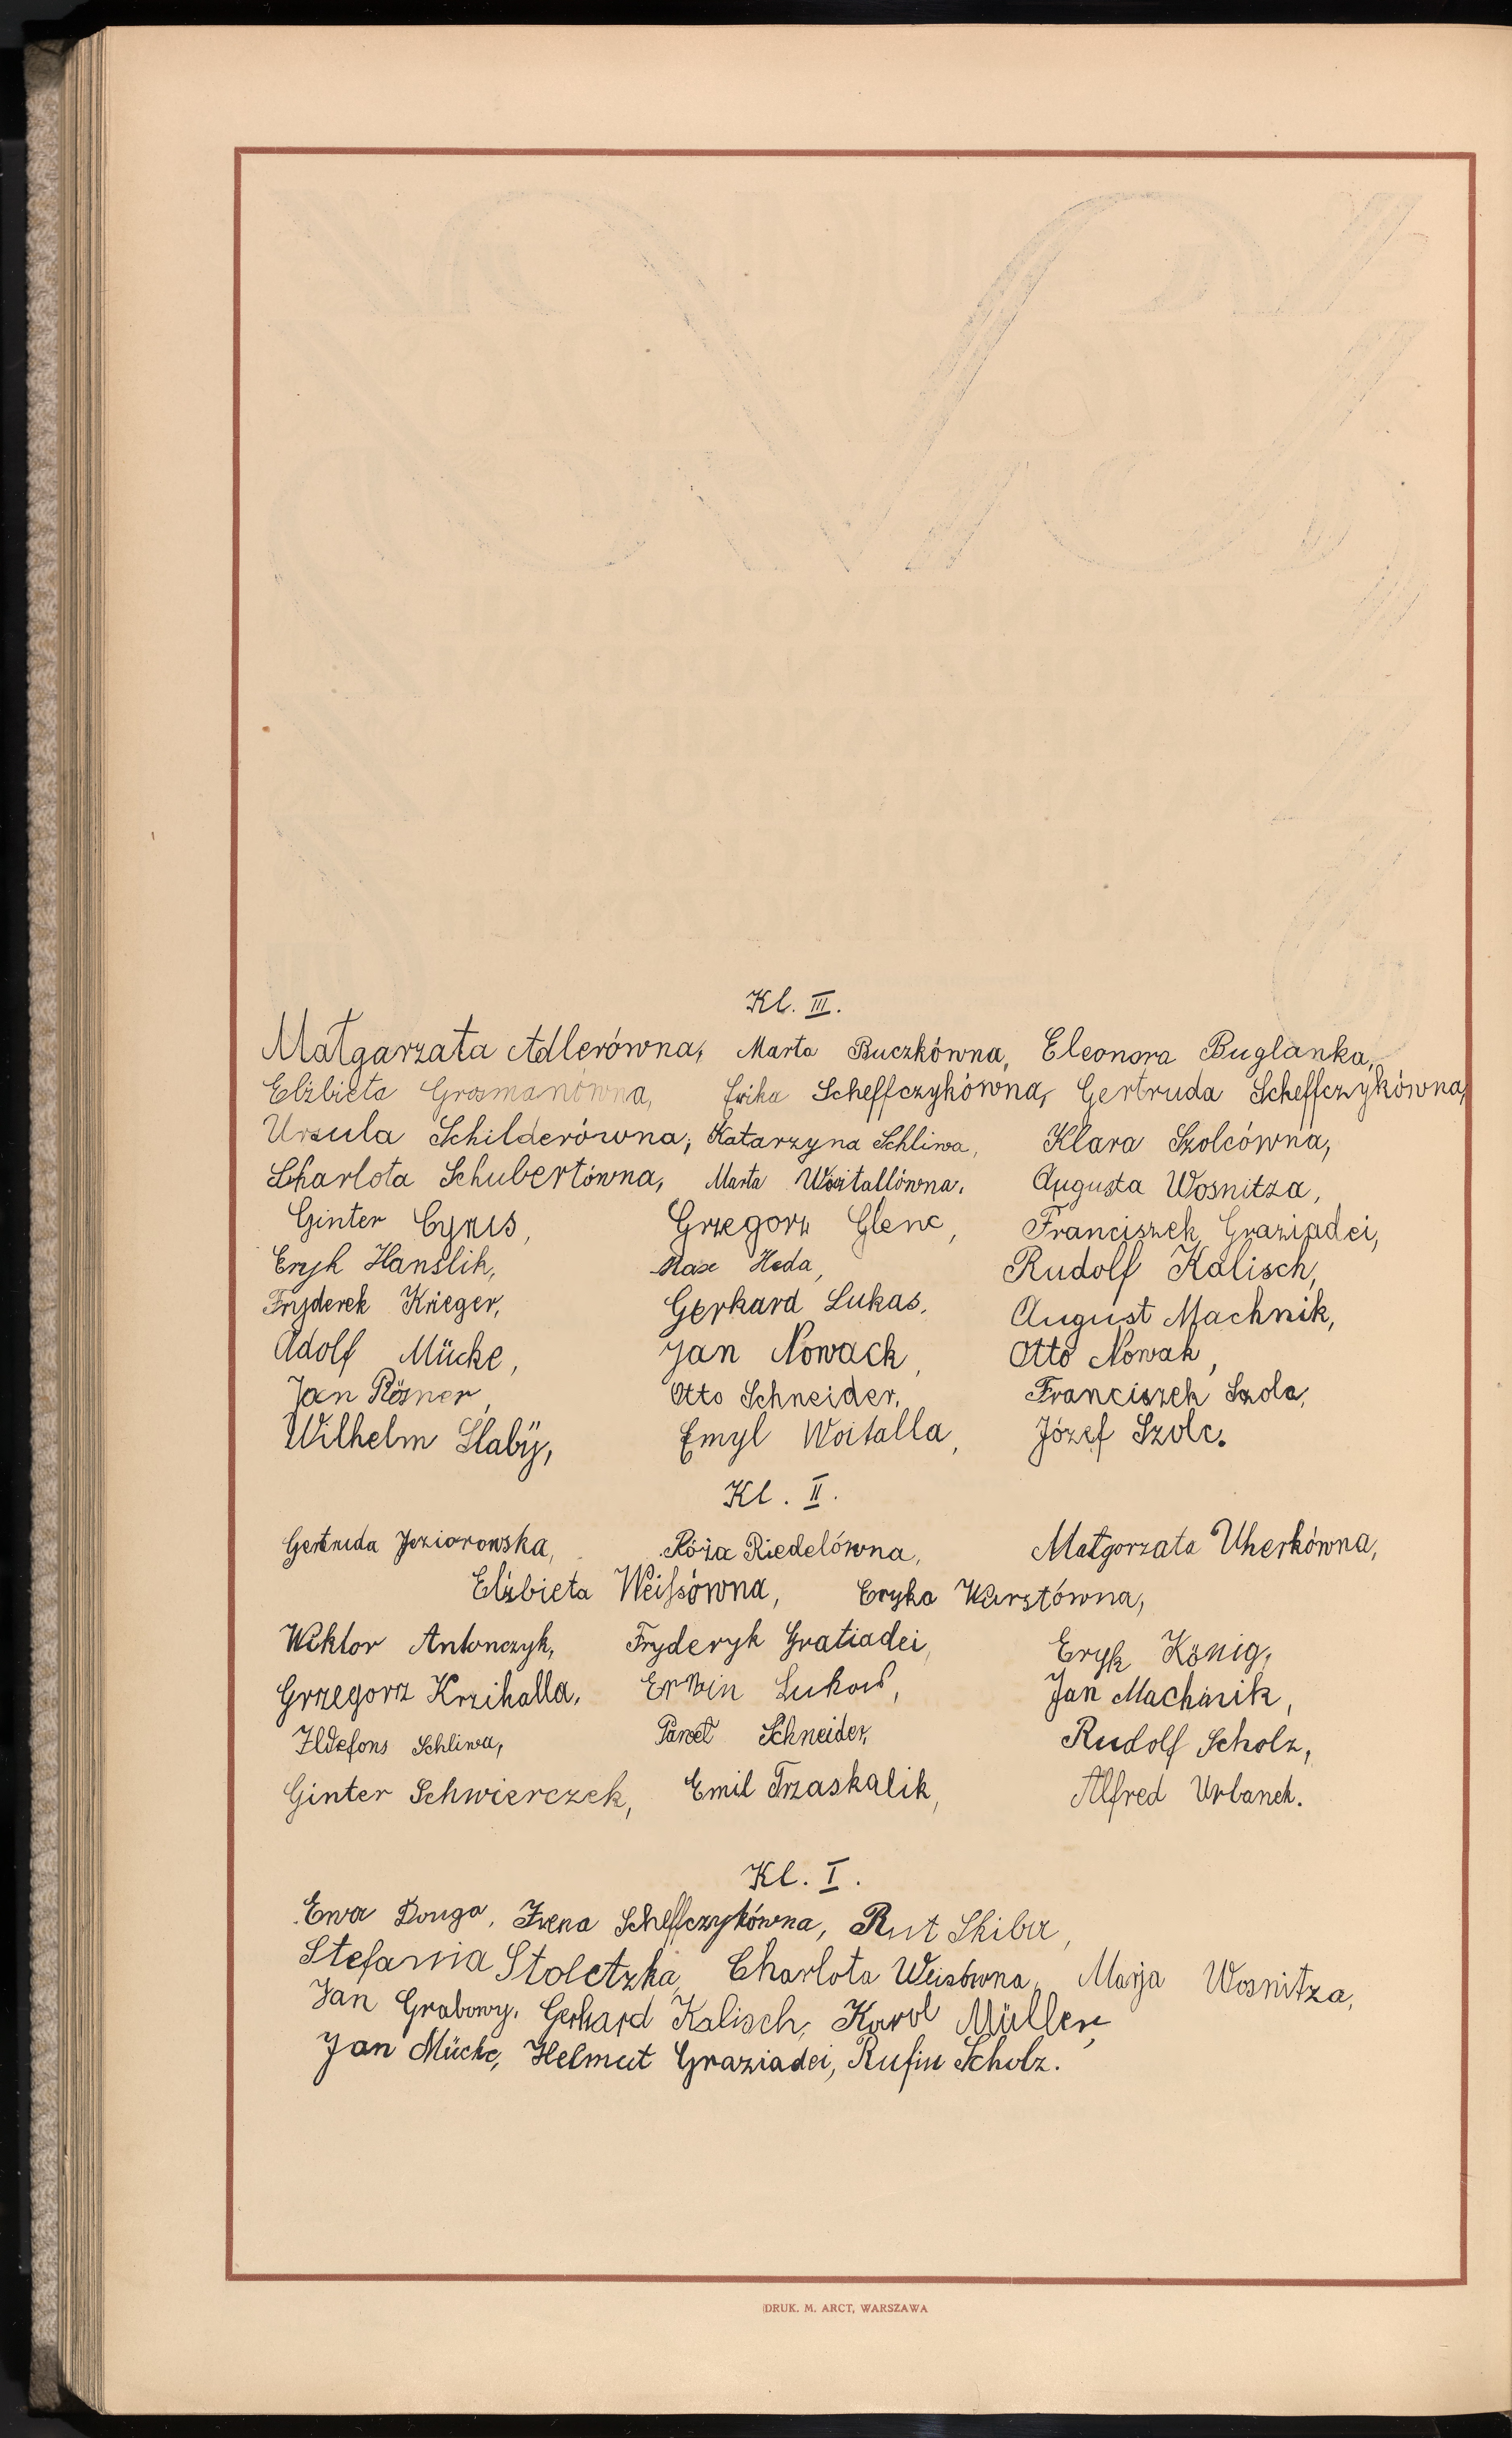 Kl. III.
Małgarzata Adlerówna, Marta Buczkówna, Eleonora Buglanka,
Elżbieta Grosmanówna, Erika Scheffczykówna, Gertruda Scheffczykówna,
Ursula Schilderówna, Katarzyna Schliwa, Klara Szolcówna,
Charlota Schubertówna, Marta Woitallówna, Augusta Wosnitza,
Ginter Cyris, Grzegorz Glenc, Franciszek Graziadei,
Eryk Hanslik, Max Hada, Rudolf Kalisch,
Fryderek Krieger, Gerhard Lukas, August Machnik,
Adolf Mücke, Jan Nowack, Otto Nowak,
Jan Rösner, Otto Schneider, Franciszek Szola,
Wilhelm Slabÿ, Emyl Woitalla, Józef Szolc.
Kl. II.
Gertruda Jeziorowska, Róża Riedelówna, Małgorzata Uherkówna,
Elżbieta Weissówna, Eryka Wurstówna,
Wiktor Antonczyk, Fryderyk Gratiadei, Eryk König,
Grzegorz Krzihalla, Erwin Lukas, Jan Machnik,
Ildefons Schliwa, Paweł Schneider, Rudolf Scholz,
Ginter Schwierczek, Emil Trzaskalik, Alfred Urbanek.
Kl. I.
Ewa Douga, Irena Scheffczykówna, Rut Skiba,
Stefania Stoletzka, Charlota Weisówna, Marja Wosnitza,
Jan Grabowy, Gerhard Kalisch, Karol Müller,
Jan Mücke, Helmut Graziadei, Rufin Scholz.
DRUK. M. ARCT, WARSZAWA